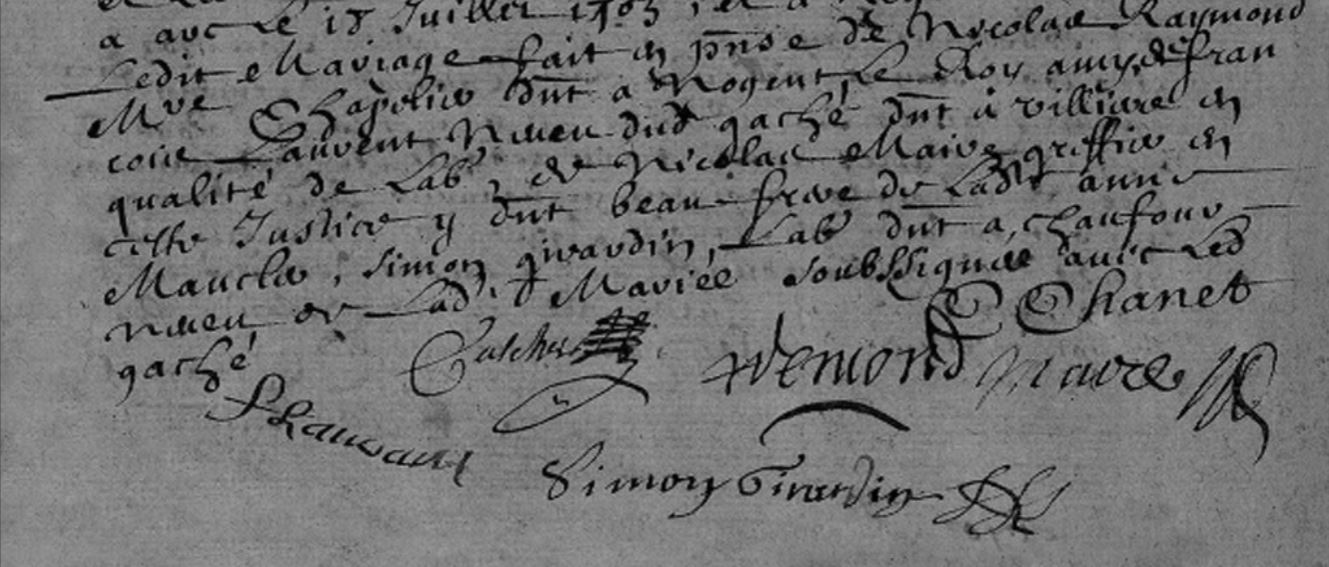 a avec le 18 Juillet 1703, et a
Ledit Mariage fait en pnce de Nicolas Raymond
Mre Chapelier dmt a Nogent le Roy amy, de fran
cois Laurent Neveu dud gaché dmt à villiere en
qualité de Labr, et de Nicolas Maire greffier en
cette Justice y dmt beau frere de Ladte anne
Mauclere, Simon girardin, Labr dmt a chaufour
Neveu de Lad. Mariée soubssignés avec Led
gaché
Gaschei Remond Maire
C Chanet
F Laurant
Simon Girardin